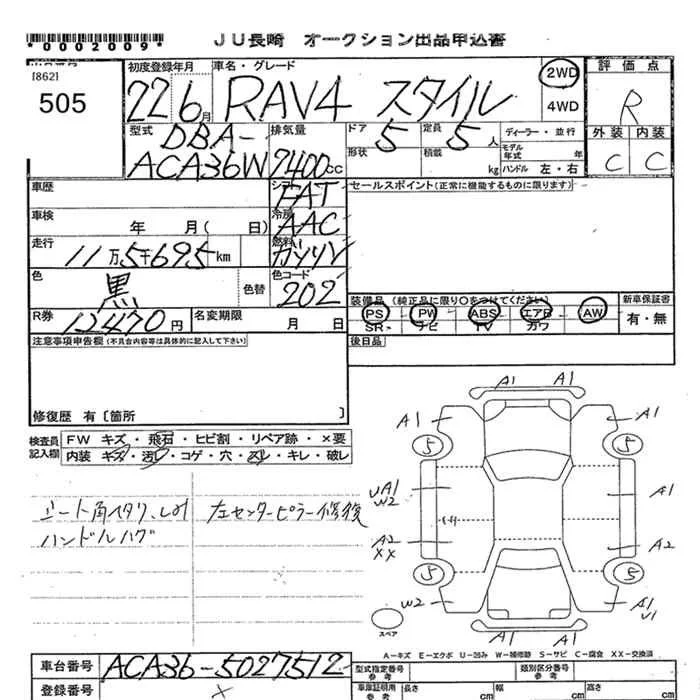 *0002009*
JU長崎 オークション出品申込書
[862]
505
初度登録年月 車名・グレード
22 6月 RAV4 スタイル
2WD
4WD
評価点
R
外装 内装
C C
型式 DBA-
ACA36W
排気量
2400cc
ドア 5 定員 5人
形状 積載 kg
ディーラー・並行
モデル年式 年
ハンドル 左・右
車歴
シフト
FAT
セールスポイント(正常に機能するものに限ります)
車検 年 月( 日)
冷房
AAC
走行 11万5千695km
燃料
ガソリン
色 黒 色替
色コード
202
R券 12470円
名変期限 月 日
装備品(純正品に限り○をつけてください)
PS PW ABS エアB AW
SR ナビ TV カワ
新車保証書
有・無
注意事項申告欄(不具合内容等は具体的に記入して下さい)
後日品
修復歴 有[箇所 ]
検査員記入欄
FW キズ・飛石・ヒビ割・リペア跡・×要
内装 キズ・汚レ・コゲ・穴・スレ・キレ・破レ
シート角ヘタリ、しみ
ハンドルハゲ
左センターピラー修復
A1 A1
A1 A1
5 5
UA1
W2
A1
A2
XX
A2
5 5
W2
A1
U1
A1 A1
スペア
A－キズ E－エクボ U－凹み W－補修跡 S－サビ C－腐食 XX－交換済
車台番号 ACA36-5027512
登録番号 ×
型式指定番号
参考
類別区分番号
参考
車庫証明用
参考
長さ cm
幅 cm
高さ cm